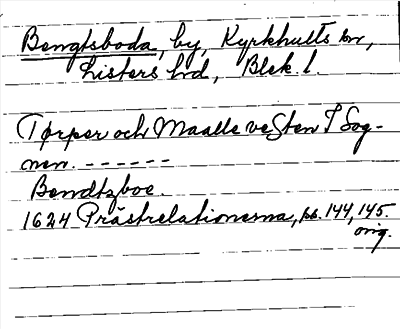 Bengtsboda, by, Kyrkhults sn,
Listers hd, Blek. l.
Tørper och Maalle vesten I Sog-
nen. ------
Bendtzboe.
1624 Prästrelationerna, ss. 144, 145.
orig.